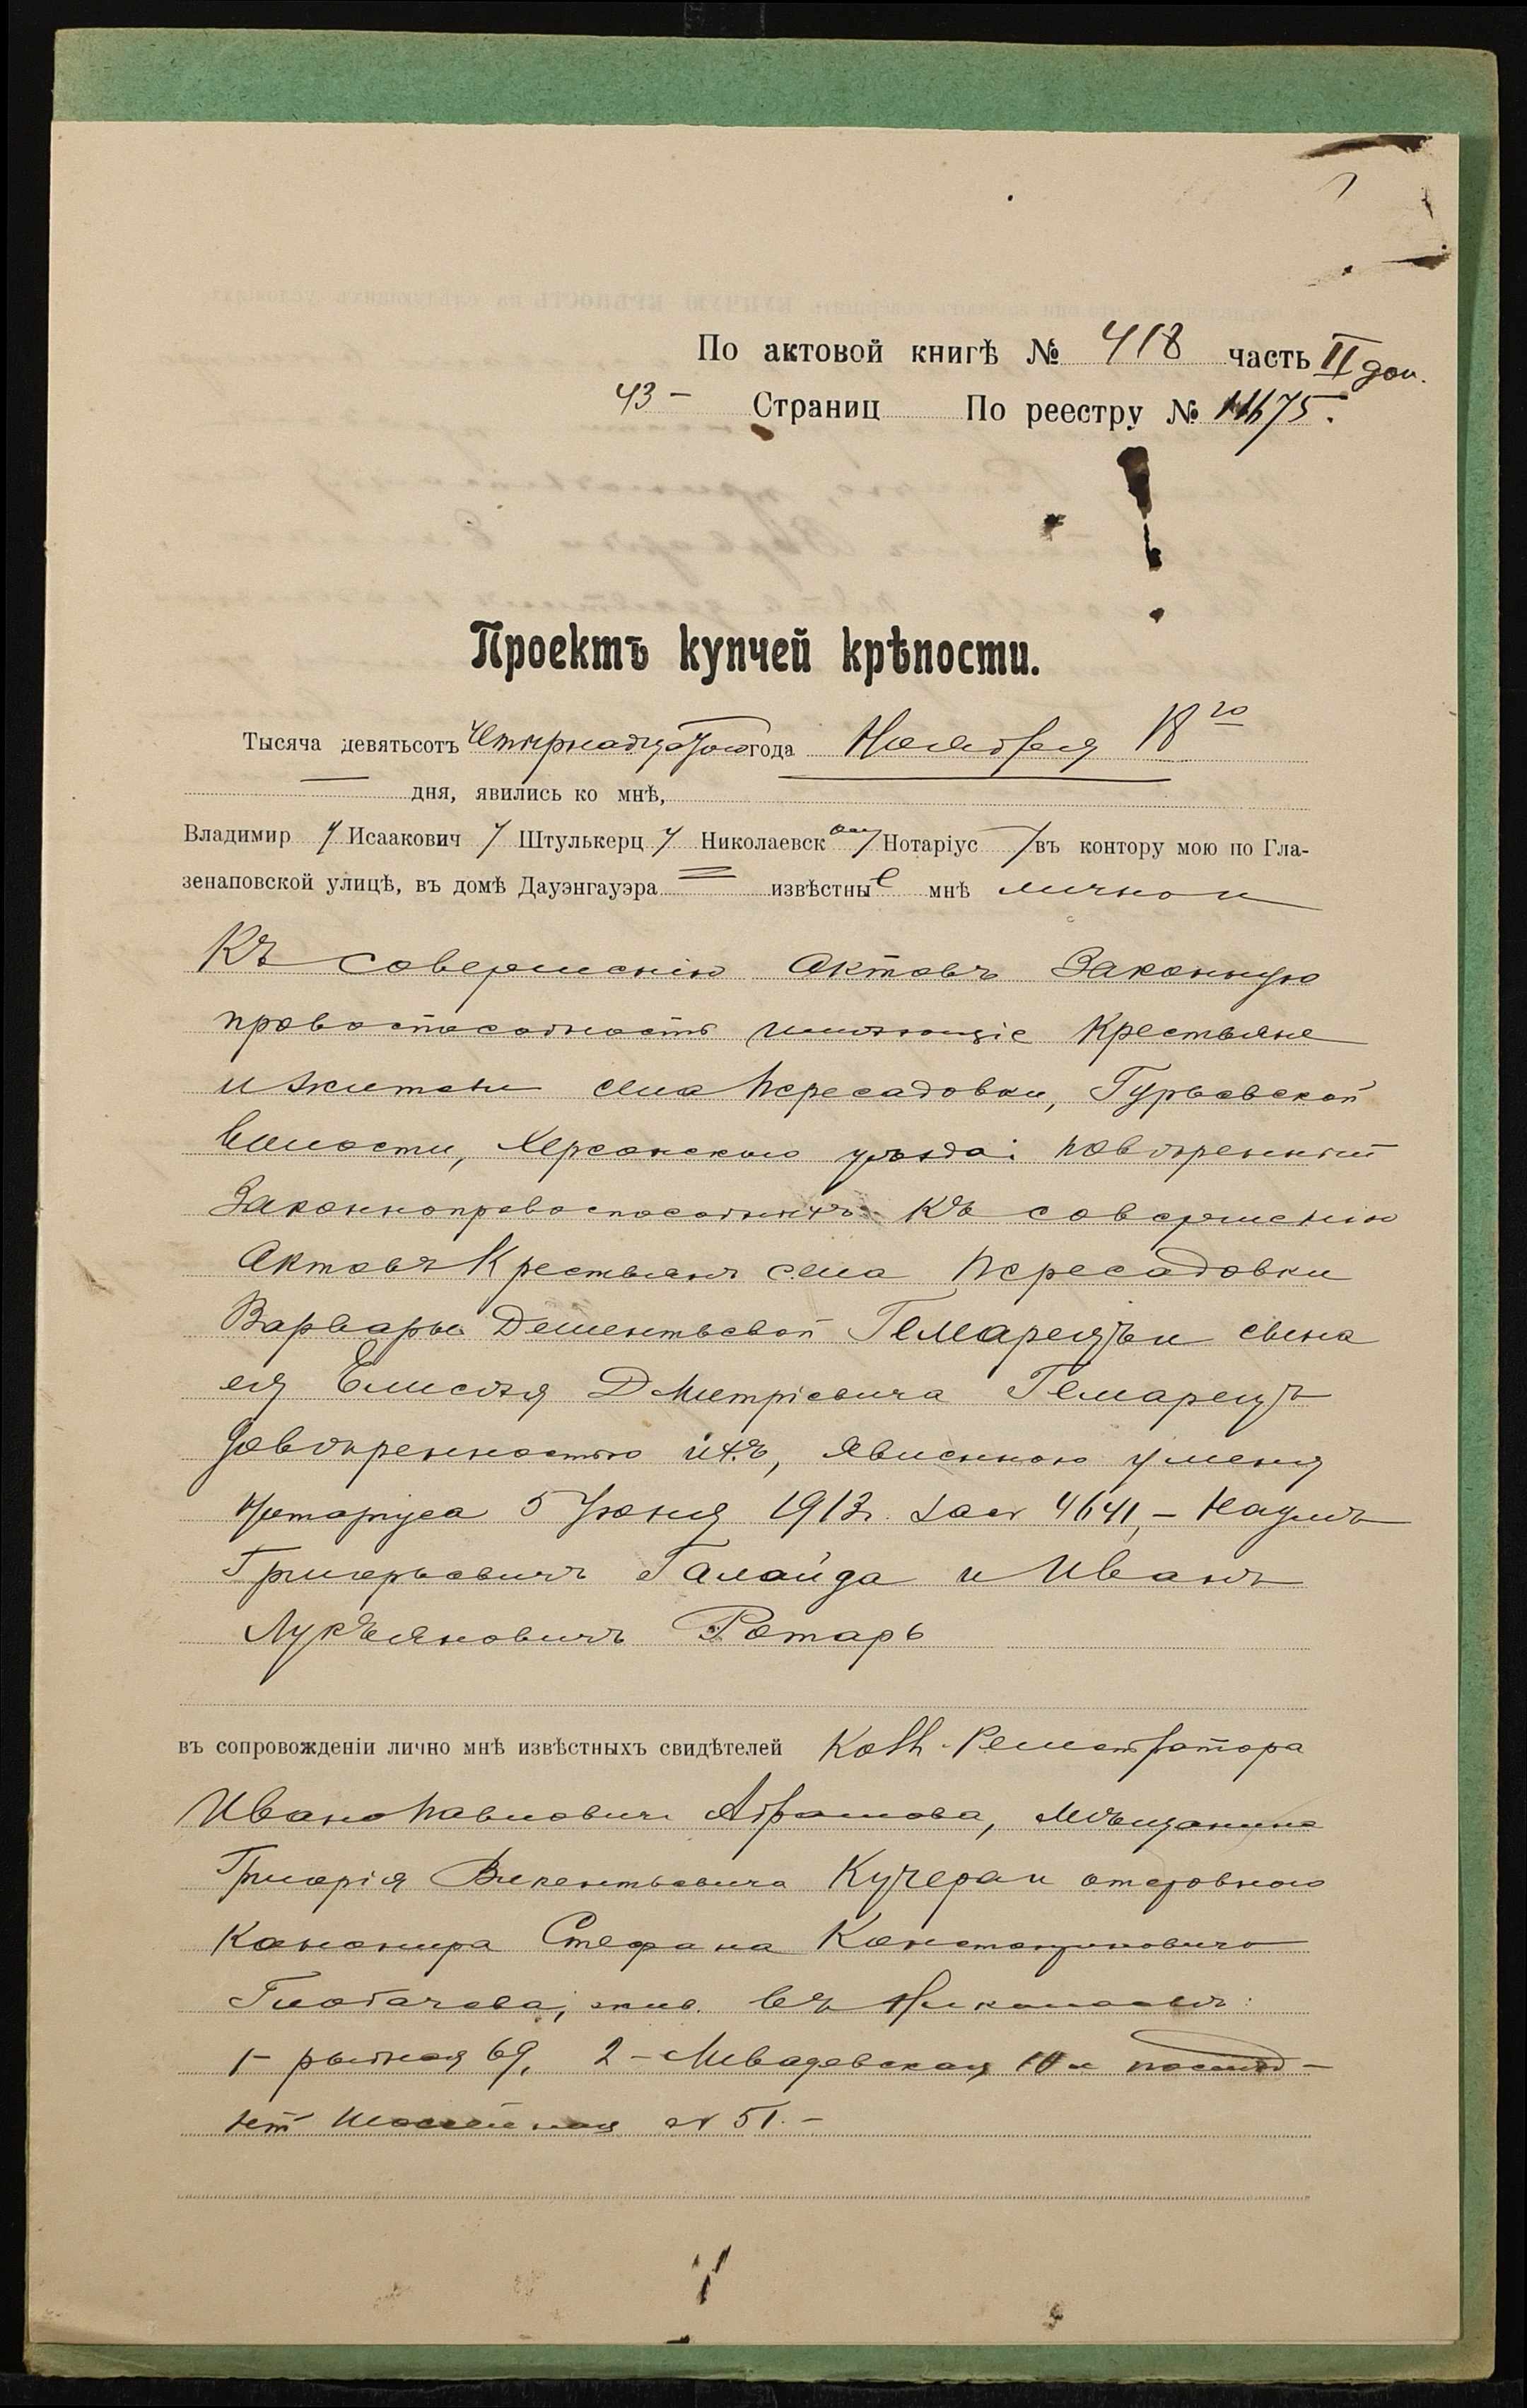 По актовой книгѣ № 418 часть II доп.
43 – Страниц По реестру № 11675.
Проектъ купчей крѣпости.
Тысяча девятьсотъ четырнадцатаго года Ноября 18 го
дня, явились ко мнѣ,
Владимир у Исаакович у Штулькерц у Николаевск ому Нотаріус у въ контору мою по Гла-
зенаповской улицѣ, въ домѣ Дауэнгауэра извѣстны е мнѣ лично и
Къ совершенію актовъ законную
правоспособность имѣющіе Крестьяне
и жители села Пересадовки, Гурьевской
волости, Херсонского уѣзда: повѣренный
законноправоспособныхъ къ совершенію
актовъ Крестьянъ села Пересадовки
Варвары Дементьевой Гемарецъ и сына
ея Елисѣя Дмитріевича Гемарецъ
довѣренностью ихъ, явленною у меня
Нотаріуса 5 Іюня 1913г. 4641, – Наумъ
Григорьевичъ Галайда и Иванъ
Лукьяновичъ Ротарь
въ сопровожденіи лично мнѣ извѣстныхъ свидѣтелей Колл. Регистратора
Ивана Павловича Абрамова, мѣщанина
Григорія Викентьевича Кучера и отставного
Канонира Стефана Константиновича
Глобачева, жив. въ Николаевѣ:
1 – рыбная 69, 2 – 10 и послѣд –
ній № 51. –